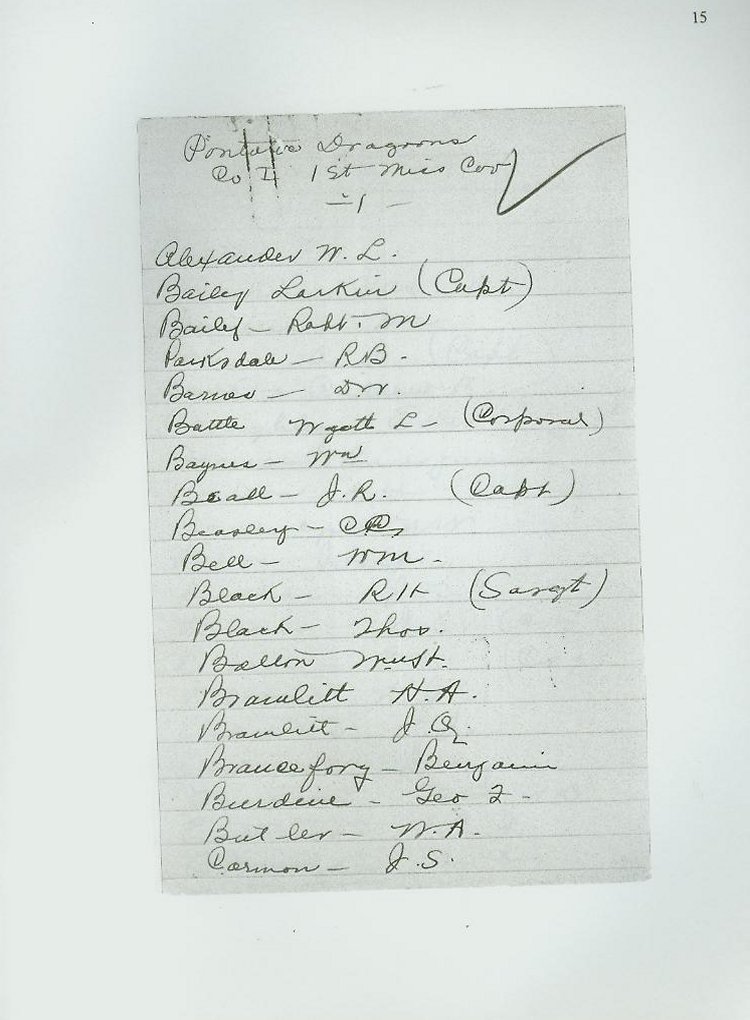 15
Dragoons
Co 1st Miss Cav
- 1 -
Alexander W. L.
Bailey Larkin (Capt)
Bailey - Robt. M
Parksdale - R B.
Barnes -
Battle Wyatt L - (Corporal)
Baynes - Wm
Beall - J. R. (Capt)
Beasley -
Bell - Wm.
Black - R H (Sargt)
Black - Thos.
Bolton
Bramlitt H. A.
Bramlitt - J. Q.
Benjamin
Burdine - Geo
Butler - W. A.
Carmon - J. S.